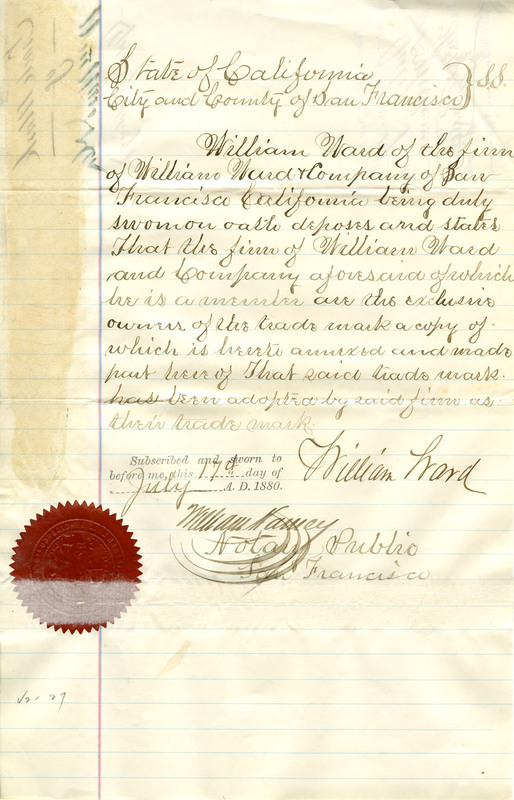 State of California
City and County of San Francisco } SS.
William Ward of the firm
of William Ward & Company of San
Francisco California being duly
sworn on oath deposes and states
That the firm of William Ward
and Company aforesaid of which
he is a member are the exclusive
owners of the trade mark a copy of
which is hereto annexed and made
part here of That said trade mark
has been adopted by said firm as
their trade mark.
Subscribed and sworn to
before me, this 17th day of
July A. D. 1880.
William Ward
William
Notary Public
San Francisco